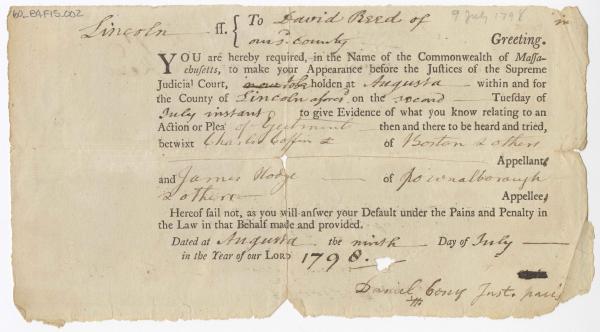 60_EAF15.002
9 July 1798
Lincoln ss. { To David Reed of
our sd. County Greeting.
YOU are hereby required, in the Name of the Commonwealth of Massa-
chusetts, to make your Appearance before the Justices of the Supreme
Judicial Court, now to be holden at Augusta within and for
the County of Lincoln aforesd. on the second Tuesday of
July instant to give Evidence of what you know relating to an
Action or Plea of Ejectment then and there to be heard and tried,
betwixt Charles Coffin & of Boston & others
Appellants
and James Hodge of pownalborough
& others Appellees
Hereof fail not, as you will answer your Default under the Pains and Penalty in
the Law in that Behalf made and provided.
Dated at Augusta the ninth Day of July
in the Year of our LORD 1798.
Daniel Cony Just. pacis